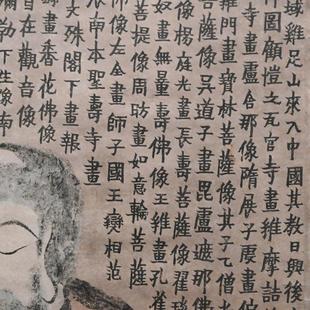 域雞足山來入中國其教日興後
圖顧愷之瓦官寺畫維摩詰
寺畫盧舍那像隋展子虔畫伯
門畫寶林菩薩像其子乙僧
菩薩像吳道子畫毘盧遮那佛
像楊庭光畫長壽菩薩像翟琰
如畫無量壽佛像王維畫孔雀
菩提像周昉畫如意輪菩薩
佛像左全畫師子國王變相范
辰南本聖壽寺畫
文殊閣下畫報
畫香花佛像
自在觀音像
彌勒下生像南